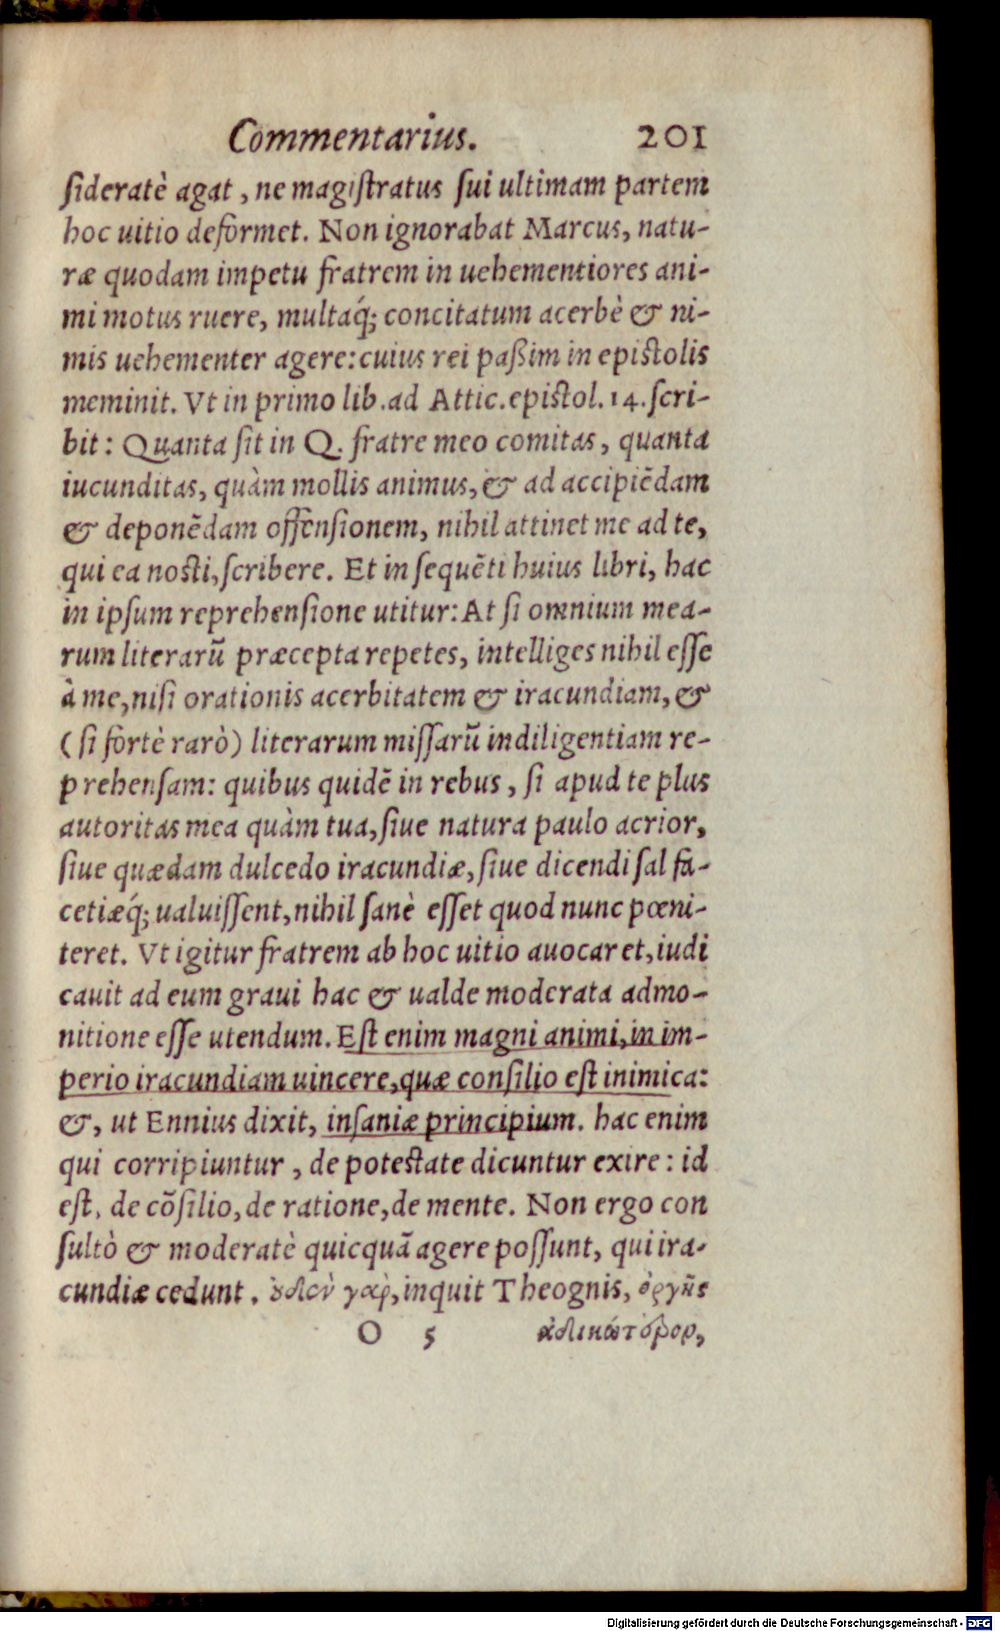 Commentarius. 201
sideratè agat, ne magistratus sui ultimam partem
hoc uitio deformet. Non ignorabat Marcus, natu-
ræ quodam impetu fratrem in uehementiores ani-
mi motus ruere, multaq́; concitatum acerbè & ni-
mis uehementer agere: cuius rei paßim in epistolis
meminit. Vt in primo lib. ad Attic. epistol. 14. scri-
bit: Quanta sit in Q. fratre meo comitas, quanta
iucunditas, quàm mollis animus, & ad accipiẽdam
& deponẽdam offensionem, nihil attinet me ad te,
qui ea nosti, scribere. Et in sequẽti huius libri, hac
in ipsum reprehensione utitur: At si omnium mea-
rum literarũ præcepta repetes, intelliges nihil esse
à me, nisi orationis acerbitatem & iracundiam, &
(si fortè rarò) literarum missarũ indiligentiam re-
prehensam: quibus quidẽ in rebus, si apud te plus
autoritas mea quàm tua, siue natura paulo acrior,
siue quædam dulcedo iracundiæ, siue dicendi sal fa-
cetiæq́; ualuissent, nihil sanè esset quod nunc pœni-
teret. Vt igitur fratrem ab hoc uitio auocaret, iudi
cauit ad eum graui hac & ualde moderata admo-
nitione esse utendum. Est enim magni animi, in im-
perio iracundiam uincere, quæ consilio est inimica:
&, ut Ennius dixit, insaniæ principium. hac enim
qui corripiuntur, de potestate dicuntur exire: id
est, de cõsilio, de ratione, de mente. Non ergo con
sultò & moderatè quicquã agere possunt, qui ira-
cundiæ cedunt. ὀδὲν γὰρ, inquit Theognis, ὀργῆς
O 5 ἀδικώτερον,
Digitalisierung gefördert durch die Deutsche Forschungsgemeinschaft - DFG